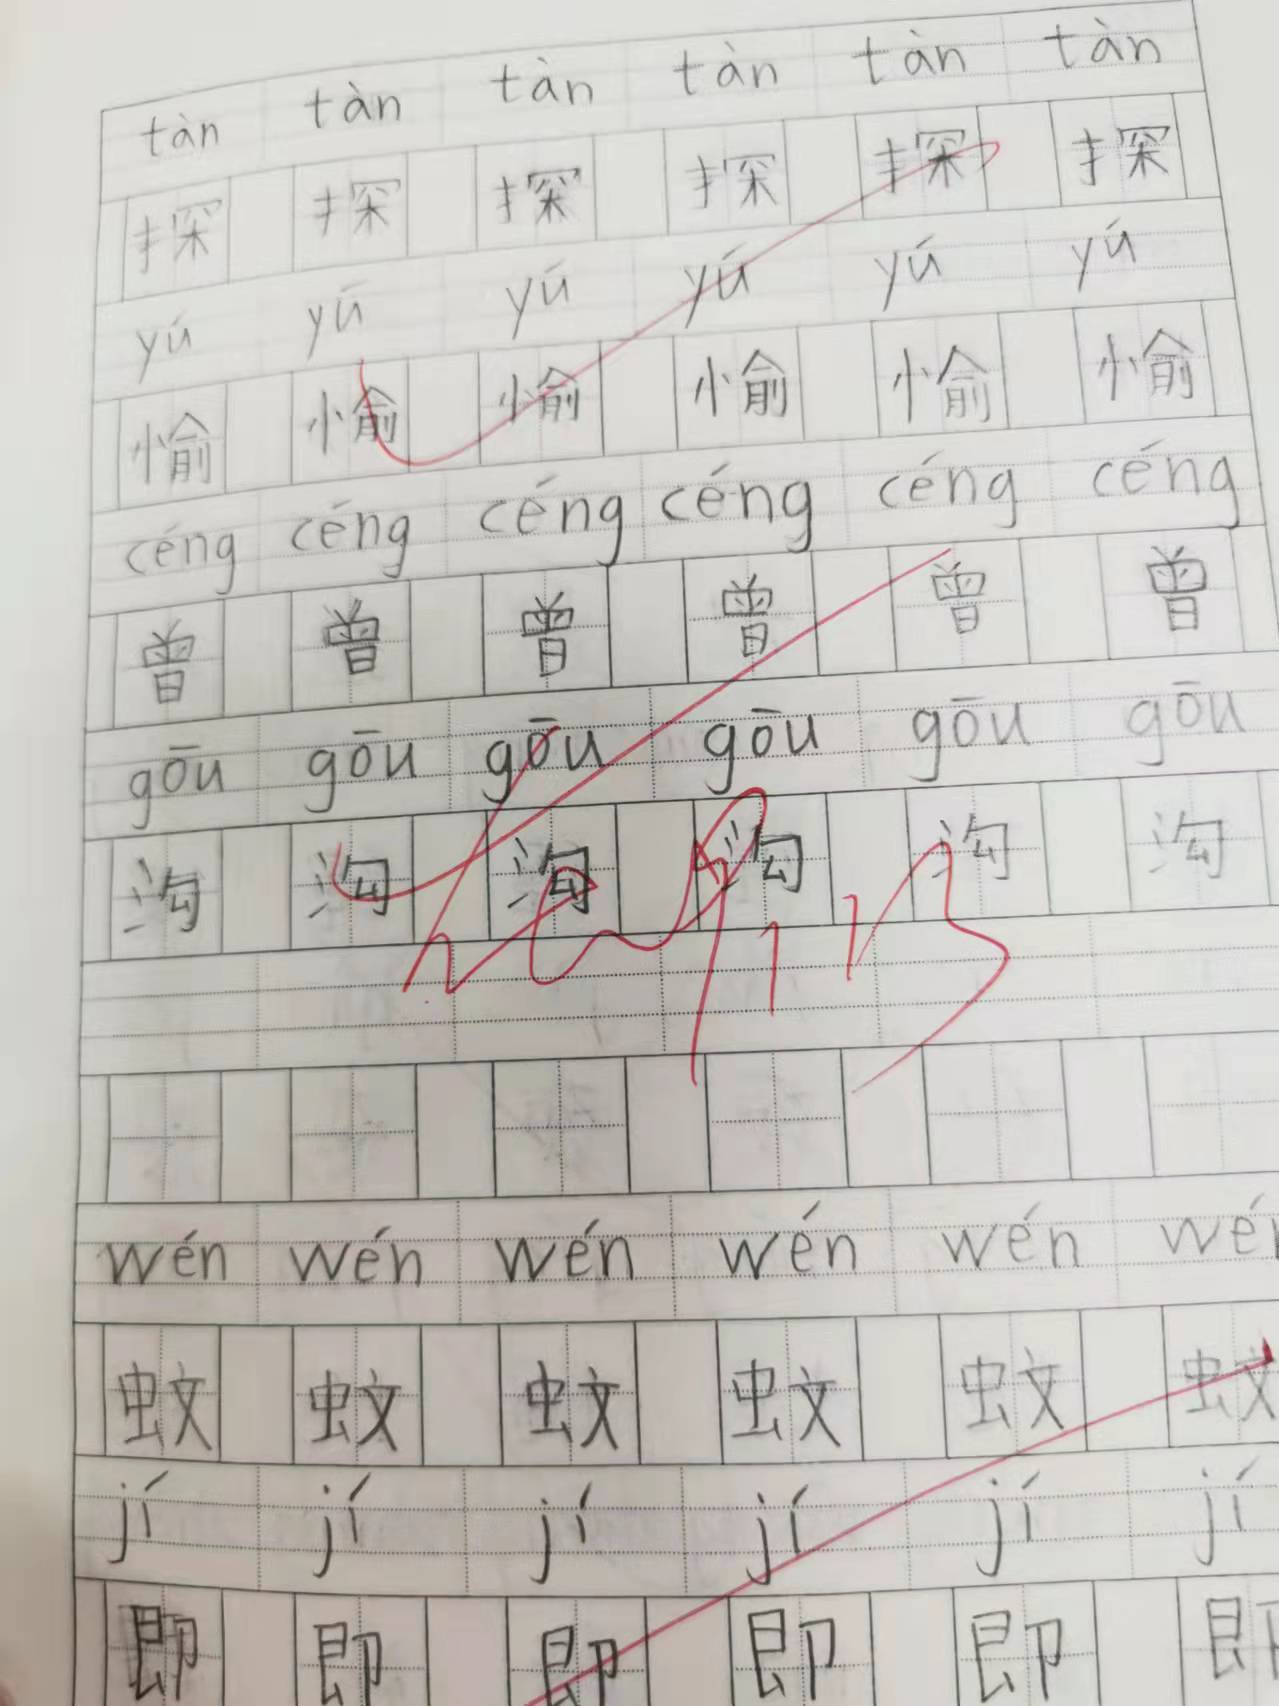 tàn tàn tàn tàn tàn tàn
探 探 探 探 探 探
yú yú yú yú yú yú
愉 愉 愉 愉 愉 愉
céng céng céng céng céng céng
曾 曾 曾 曾 曾 曾
gōu gōu gōu gōu gōu gōu
沟 沟 沟 沟 沟 沟
wén wén wén wén wén wén
蚊 蚊 蚊 蚊 蚊 蚊
jí jí jí jí jí jí
即 即 即 即 即 即